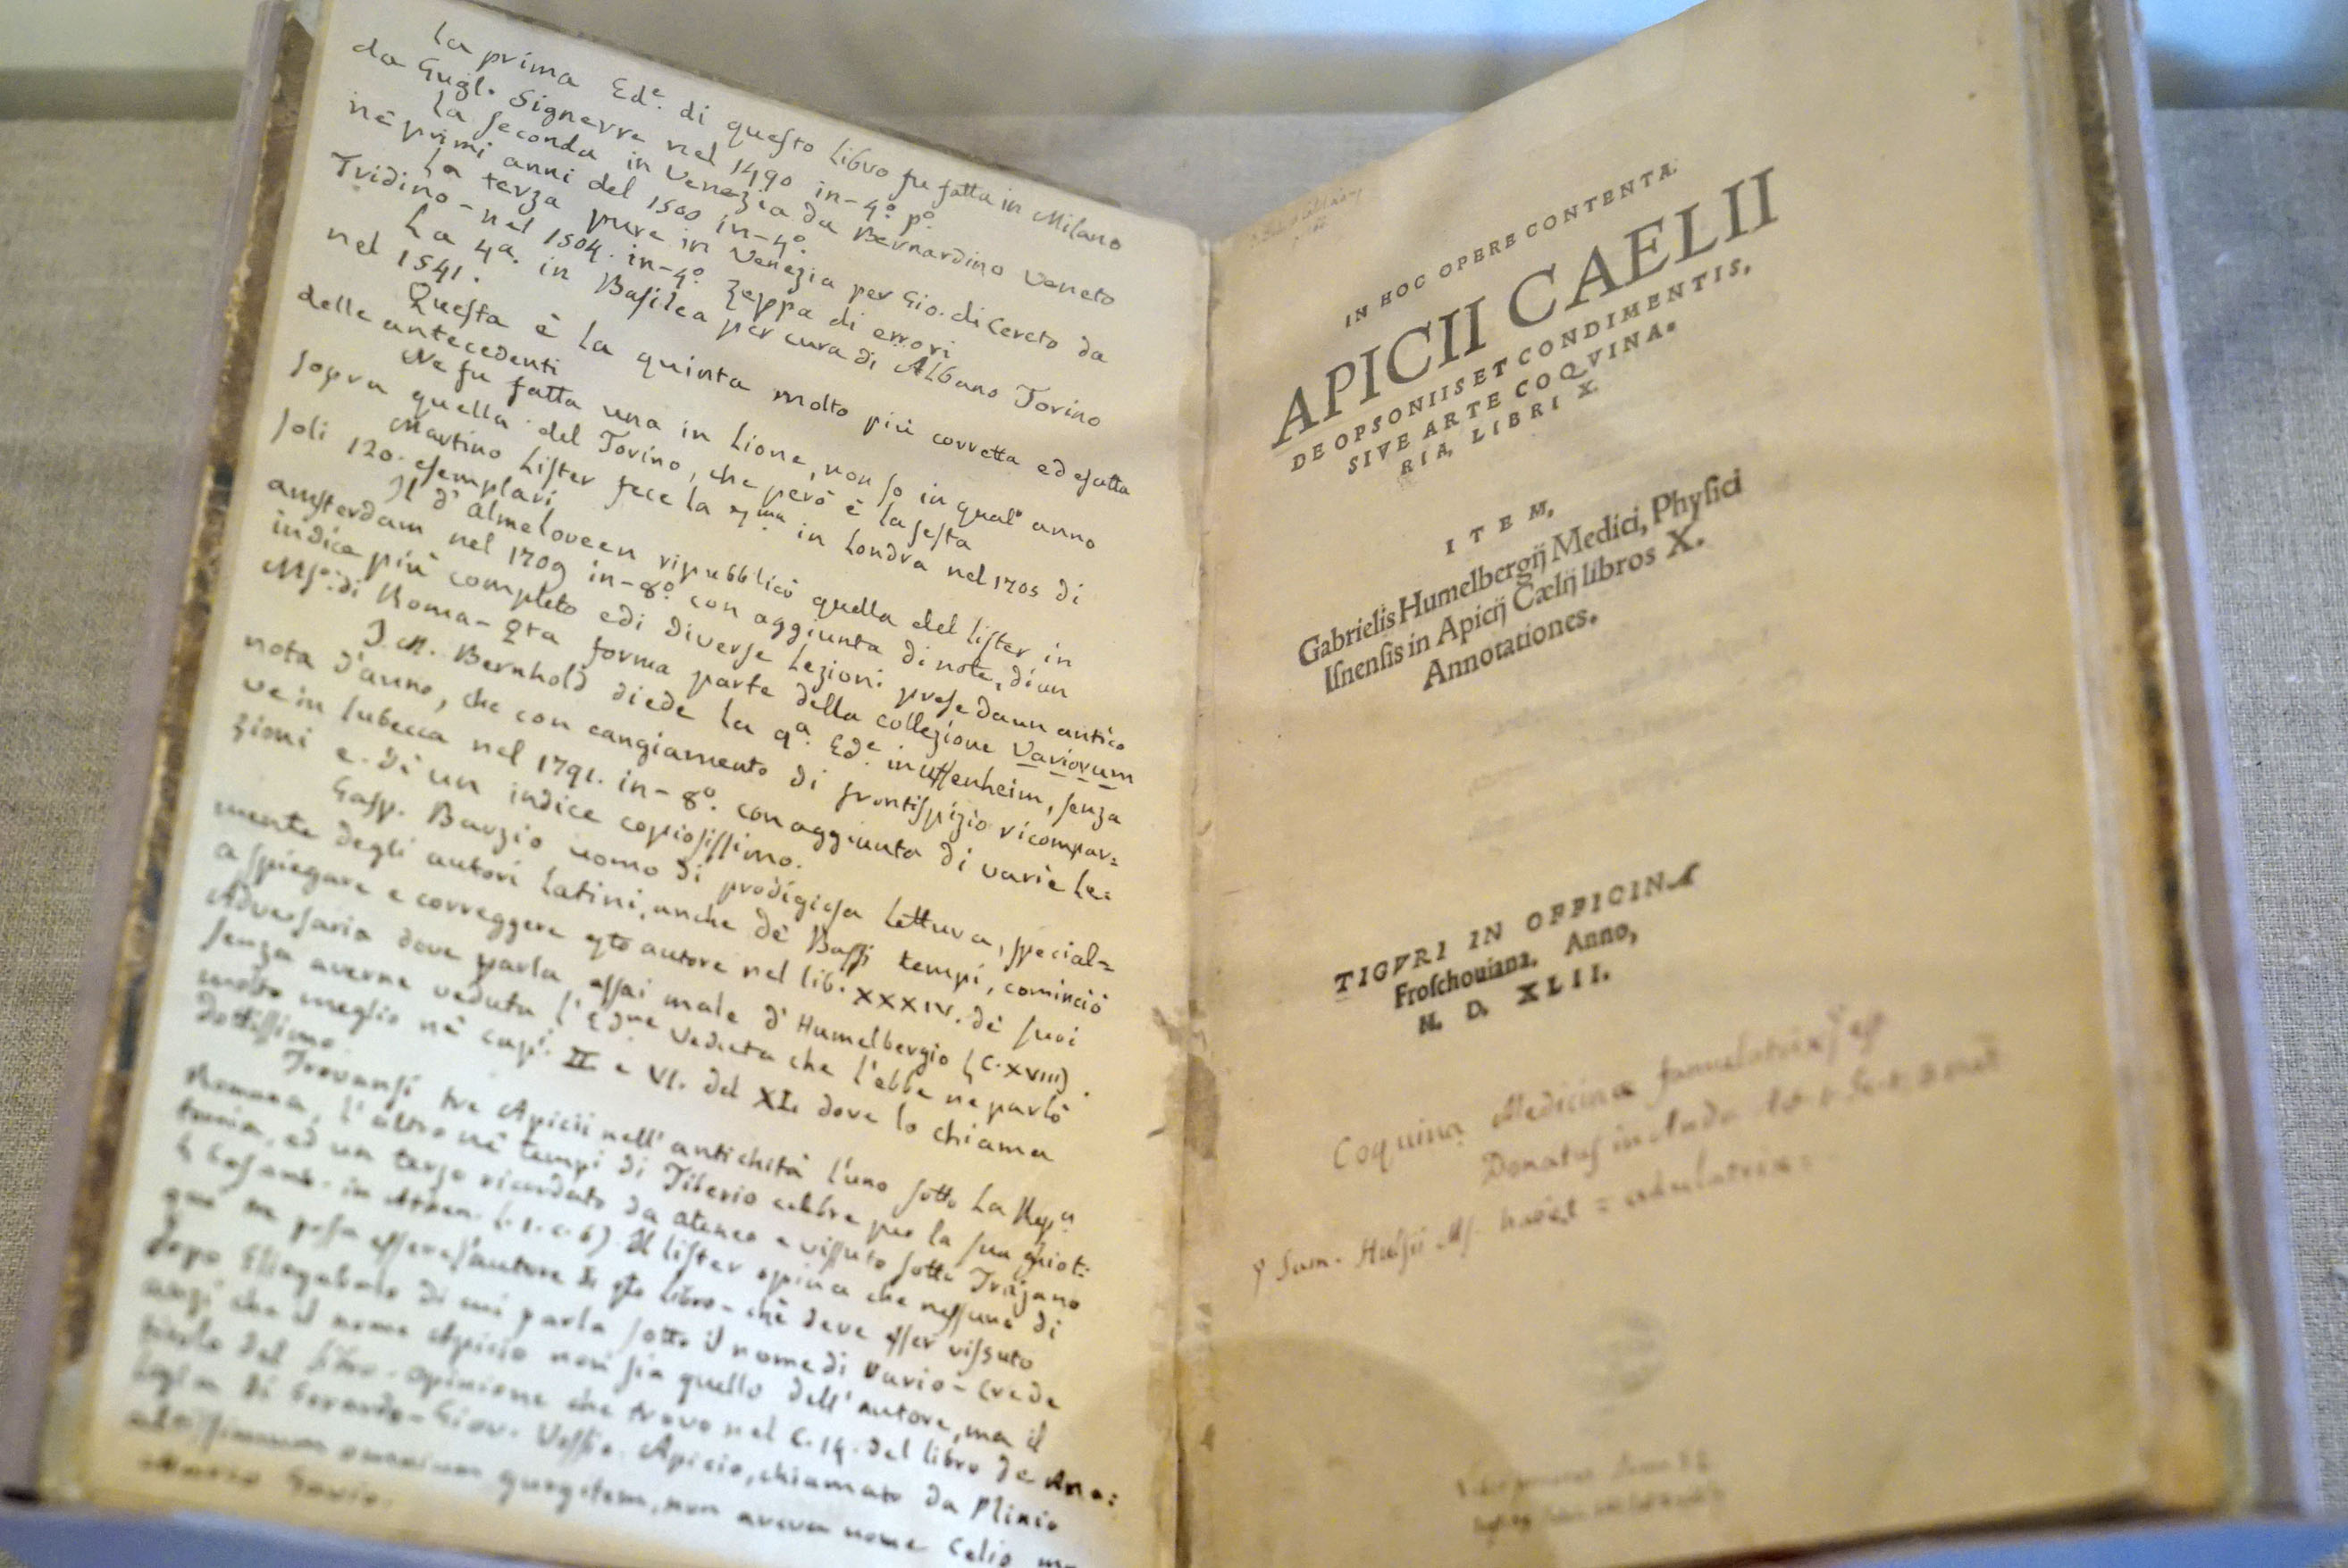 la prima Ed.e di questo libro fu fatta in Milano
da Gugl. Signerre nel 1490 in-4.o p.o
la seconda in Venezia da Bernardino Veneto
ne primi anni del 1500 in-4.o
la terza pure in Venezia per Gio. di Cereto da
Tridino - nel 1504. in-4.o zeppa di errori
La 4a. in Basilea per cura di Albano Torino
nel 1541.
Questa è la quinta molto più corretta ed esatta
delle antecedenti
Ne fu fatta una in Lione, non so in qual' anno
sopra quella del Torino, che però è la sesta
Martino Lister fece la 7ma in Londra nel 1705 di
soli 120. esemplari
Il d'Almeloveen ripubblicò quella del Lister in
amsterdam nel 1709 in-8.o con aggiunta di note, di un
indice più completo e di diverse lezioni prese da un antico
Ms.o di Roma - Qta forma parte della collezione Variorum
J. M. Bernhold diede la 9.a Ed.e in Uffenheim, senza
nota d'anno, che con cangiamento di frontispizio ricompar=
ve in Lubecca nel 1791. in-8.o con aggiunta di varie le=
zioni e di un indice copiosissimo.
Gasp. Barzio uomo di prodigiosa lettura, special=
mente degli autori latini, anche de' Bassi tempi, cominciò
a spiegare e correggere qto autore nel lib. XXXIV. de' suoi
Adversaria dove parla assai male d'Humelbergio (C. XVIII).
senza averne veduta l'Edne Veduta che l'ebbe ne parlò
molto meglio ne' capi. II e VI. del XL. dove lo chiama
dottissimo.
Trovansi tre Apicii nell'antichità l'uno sotto la Rep.a
Romana, l'altro ne' tempi di Tiberio celebre per la sua ghiot:
tonia, ed un terzo ricordato da ateneo e vissuto sotto Trajano
in Athen. l. 1. c. 6) Il lister opina che nessuno di
ne possa essere l'autore di qto libro - che deve esser vissuto
dopo Eliogabalo di cui parla sotto il nome di Vario - Crede
anzi che il nome Apicio non sia quello dell'autore, ma il
titolo del libro - opinione che trovo nel C. 14. del libro de Ana:
logia di Gerardo - Giov. Vossio. Apicio, chiamato da Plinio
altissimum omnium gurgitem, non aveva nome Celio
Marco Gavio.
IN HOC OPERE CONTENTA.
APICII CAELII
DE OPSONIIS ET CONDIMENTIS,
SIVE ARTE COQVINA=
RIA, LIBRI X.
ITEM,
Gabrielis Humelbergij Medici, Physici
Isnensis in Apicij Cælij libros X.
Annotationes.
TIGVRI IN OFFICINA
Froschouiana. Anno,
M. D. XLII.
Coquina Medicinæ famulatrix est
Donatus in
Sam. Hulsii Ms. habet = adulatrix